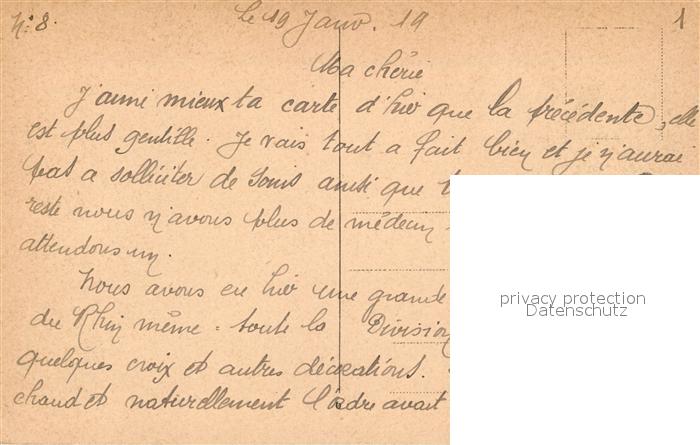 N: 8.
Le 19 Janv. 19
1
Ma chérie
J'aime mieux ta carte d'hier que la précédente, elle
est plus gentille. Je vais tout a fait bien et je n'aurai
pas a solliciter de soins ainsi que
reste nous n'avons plus de médecin
attendons un.
Nous avons eu hier une grande
du Rhin même = toute la Division
quelques croix et autres décorations.
chaud et naturellement l'ordre avait
privacy protection
Datenschutz